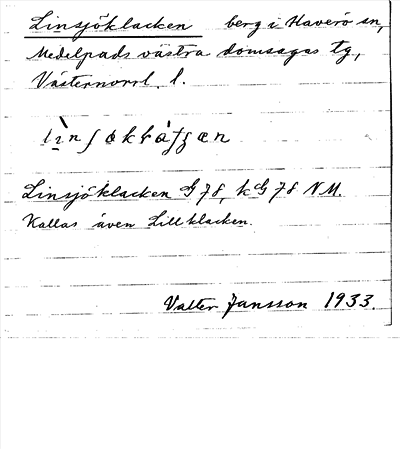 Linsjöklacken berg i Haverö sn,
Medelpads västra domsagas tg,
Västernorrl. l.
Linsjöklacken G 78, kG 78 NM.
Kallas även Lillklacken.
Valter Jansson 1933.